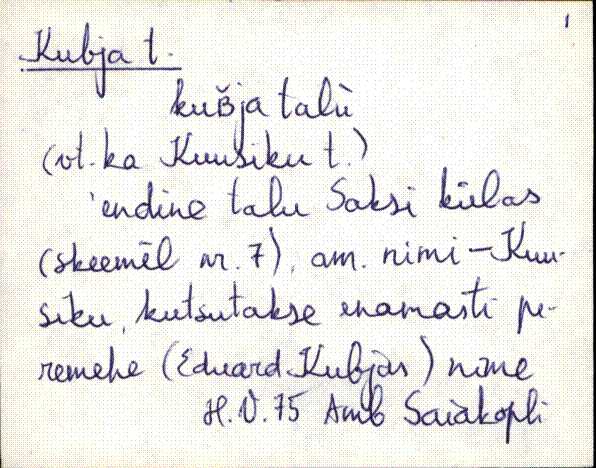 1
Kubja t.
kuʙja talù
(vt. ka Kuusiku t.)
endine talu Saksi külas
(skeemil nr. 7), am. nimi – Kuu-
siku, kutsutakse enamasti pe-
remehe (Eduard Kubjas) nime
H.V. 75 Amb Saiakopli